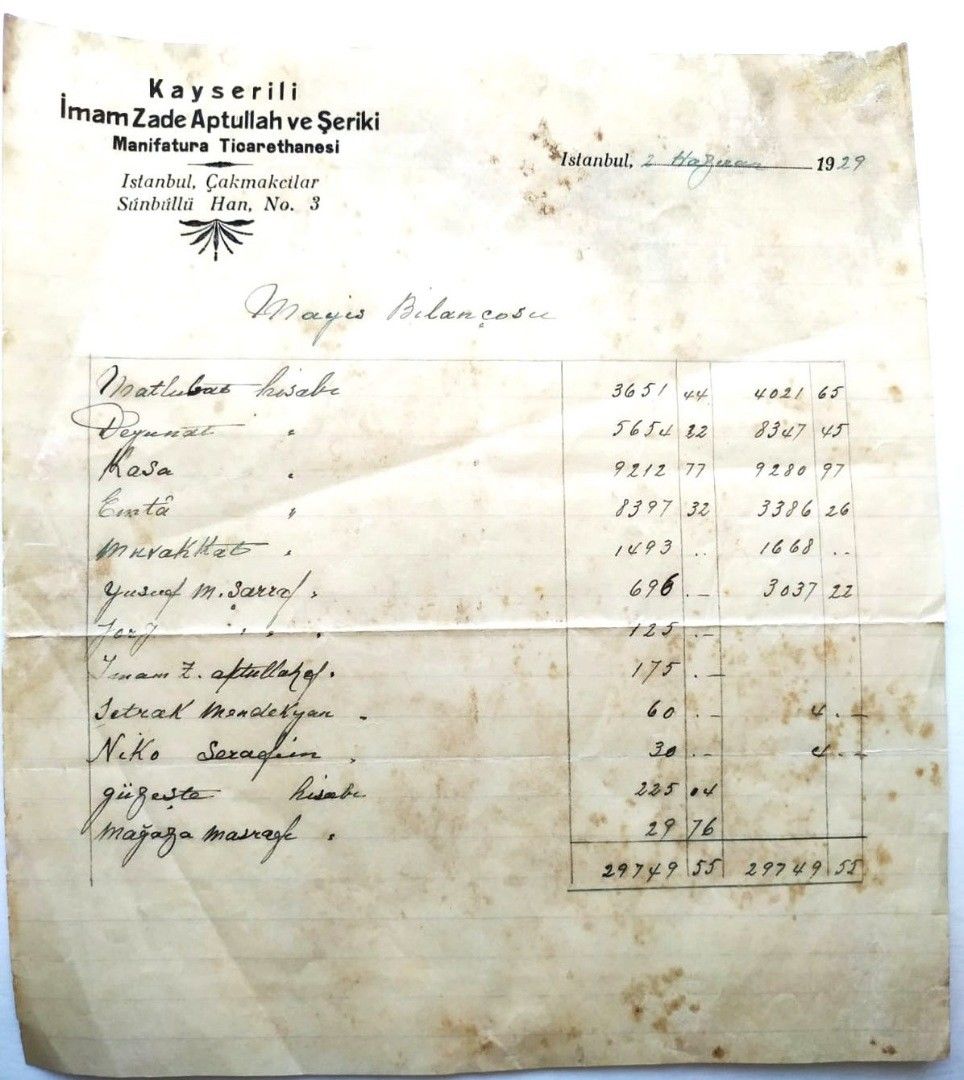 Kayserili
İmam Zade Aptullah ve Şeriki
Manifatura Ticarethanesi
Istanbul, Çakmakcilar
Sünbüllü Han, No. 3
Istanbul, 2 Haziran 1929
Mayis Bilançosu
Matlubat hisabı 3651 44 4021 65
Deyunat " 5654 22 8347 45
Kasa " 9212 77 9280 97
Emtâ " 8397 32 3386 26
Muvakkat " 1493 .. 1668 ..
Yusuf M. Sarraf " 696 .- 3037 22
Jorj " " " 125 .-
Imam Z. Aptullah ef. 175 .-
Setrak Mendekyan " 60 .- 4 .-
Niko Serafim " 30 .- 4 .-
güzeşte hisabı 225 04
Mağaza masrafı " 29 76
29749 55 29749 55